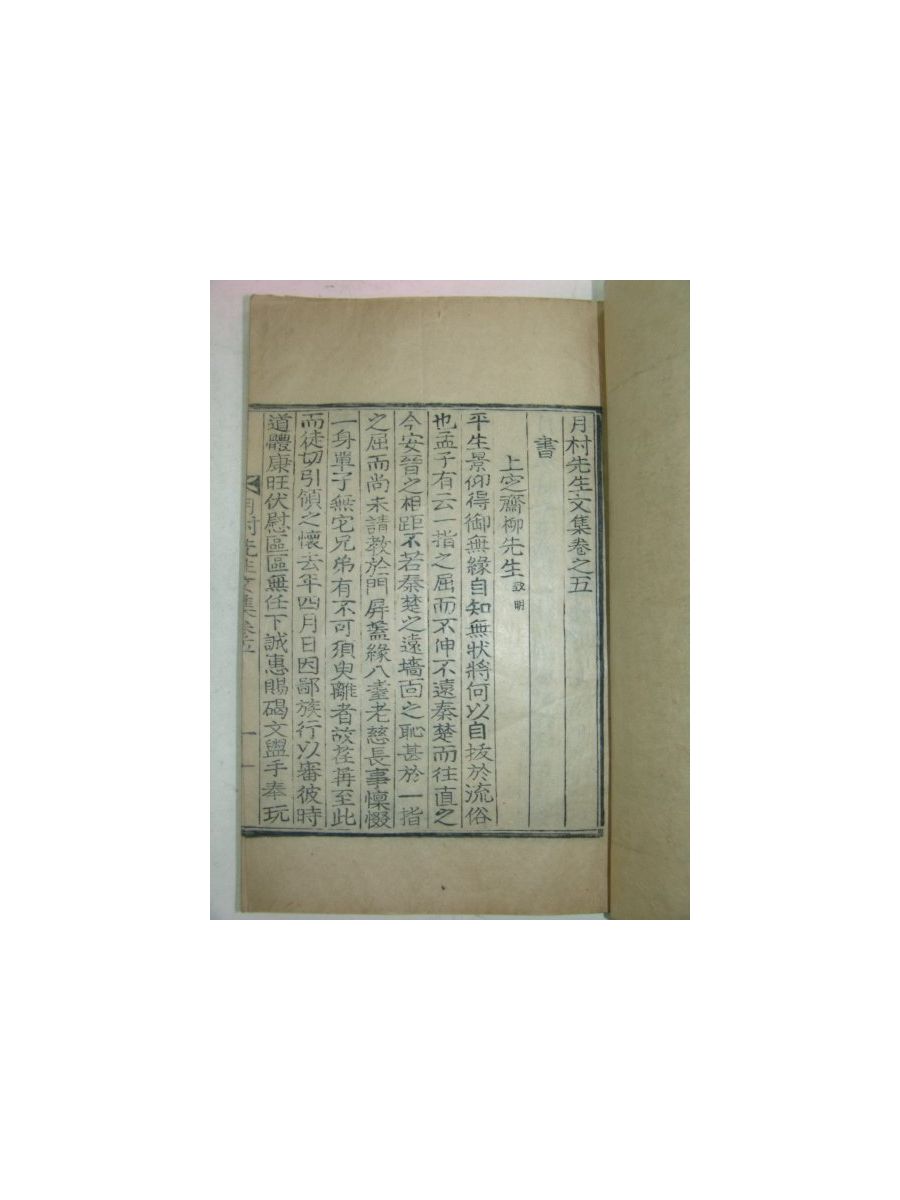 月村先生文集卷之五
書
上定齋柳先生致明
平生景仰得御無緣自知無狀將何以自拔於流俗
也孟子有云一指之屈而不伸不遠秦楚而往直之
今安晉之相距不若秦楚之遠墻面之恥甚於一指
之屈而尚未請敎於門屛盖緣八耋老慈長事懍惙
一身單孑無它兄弟有不可須臾離者故荏苒至此
而徒切引領之懷去年四月日因鄙族行以審彼時
道體康旺伏慰區區無任下誠惠賜碣文盥手奉玩
月村先生文集卷五
一